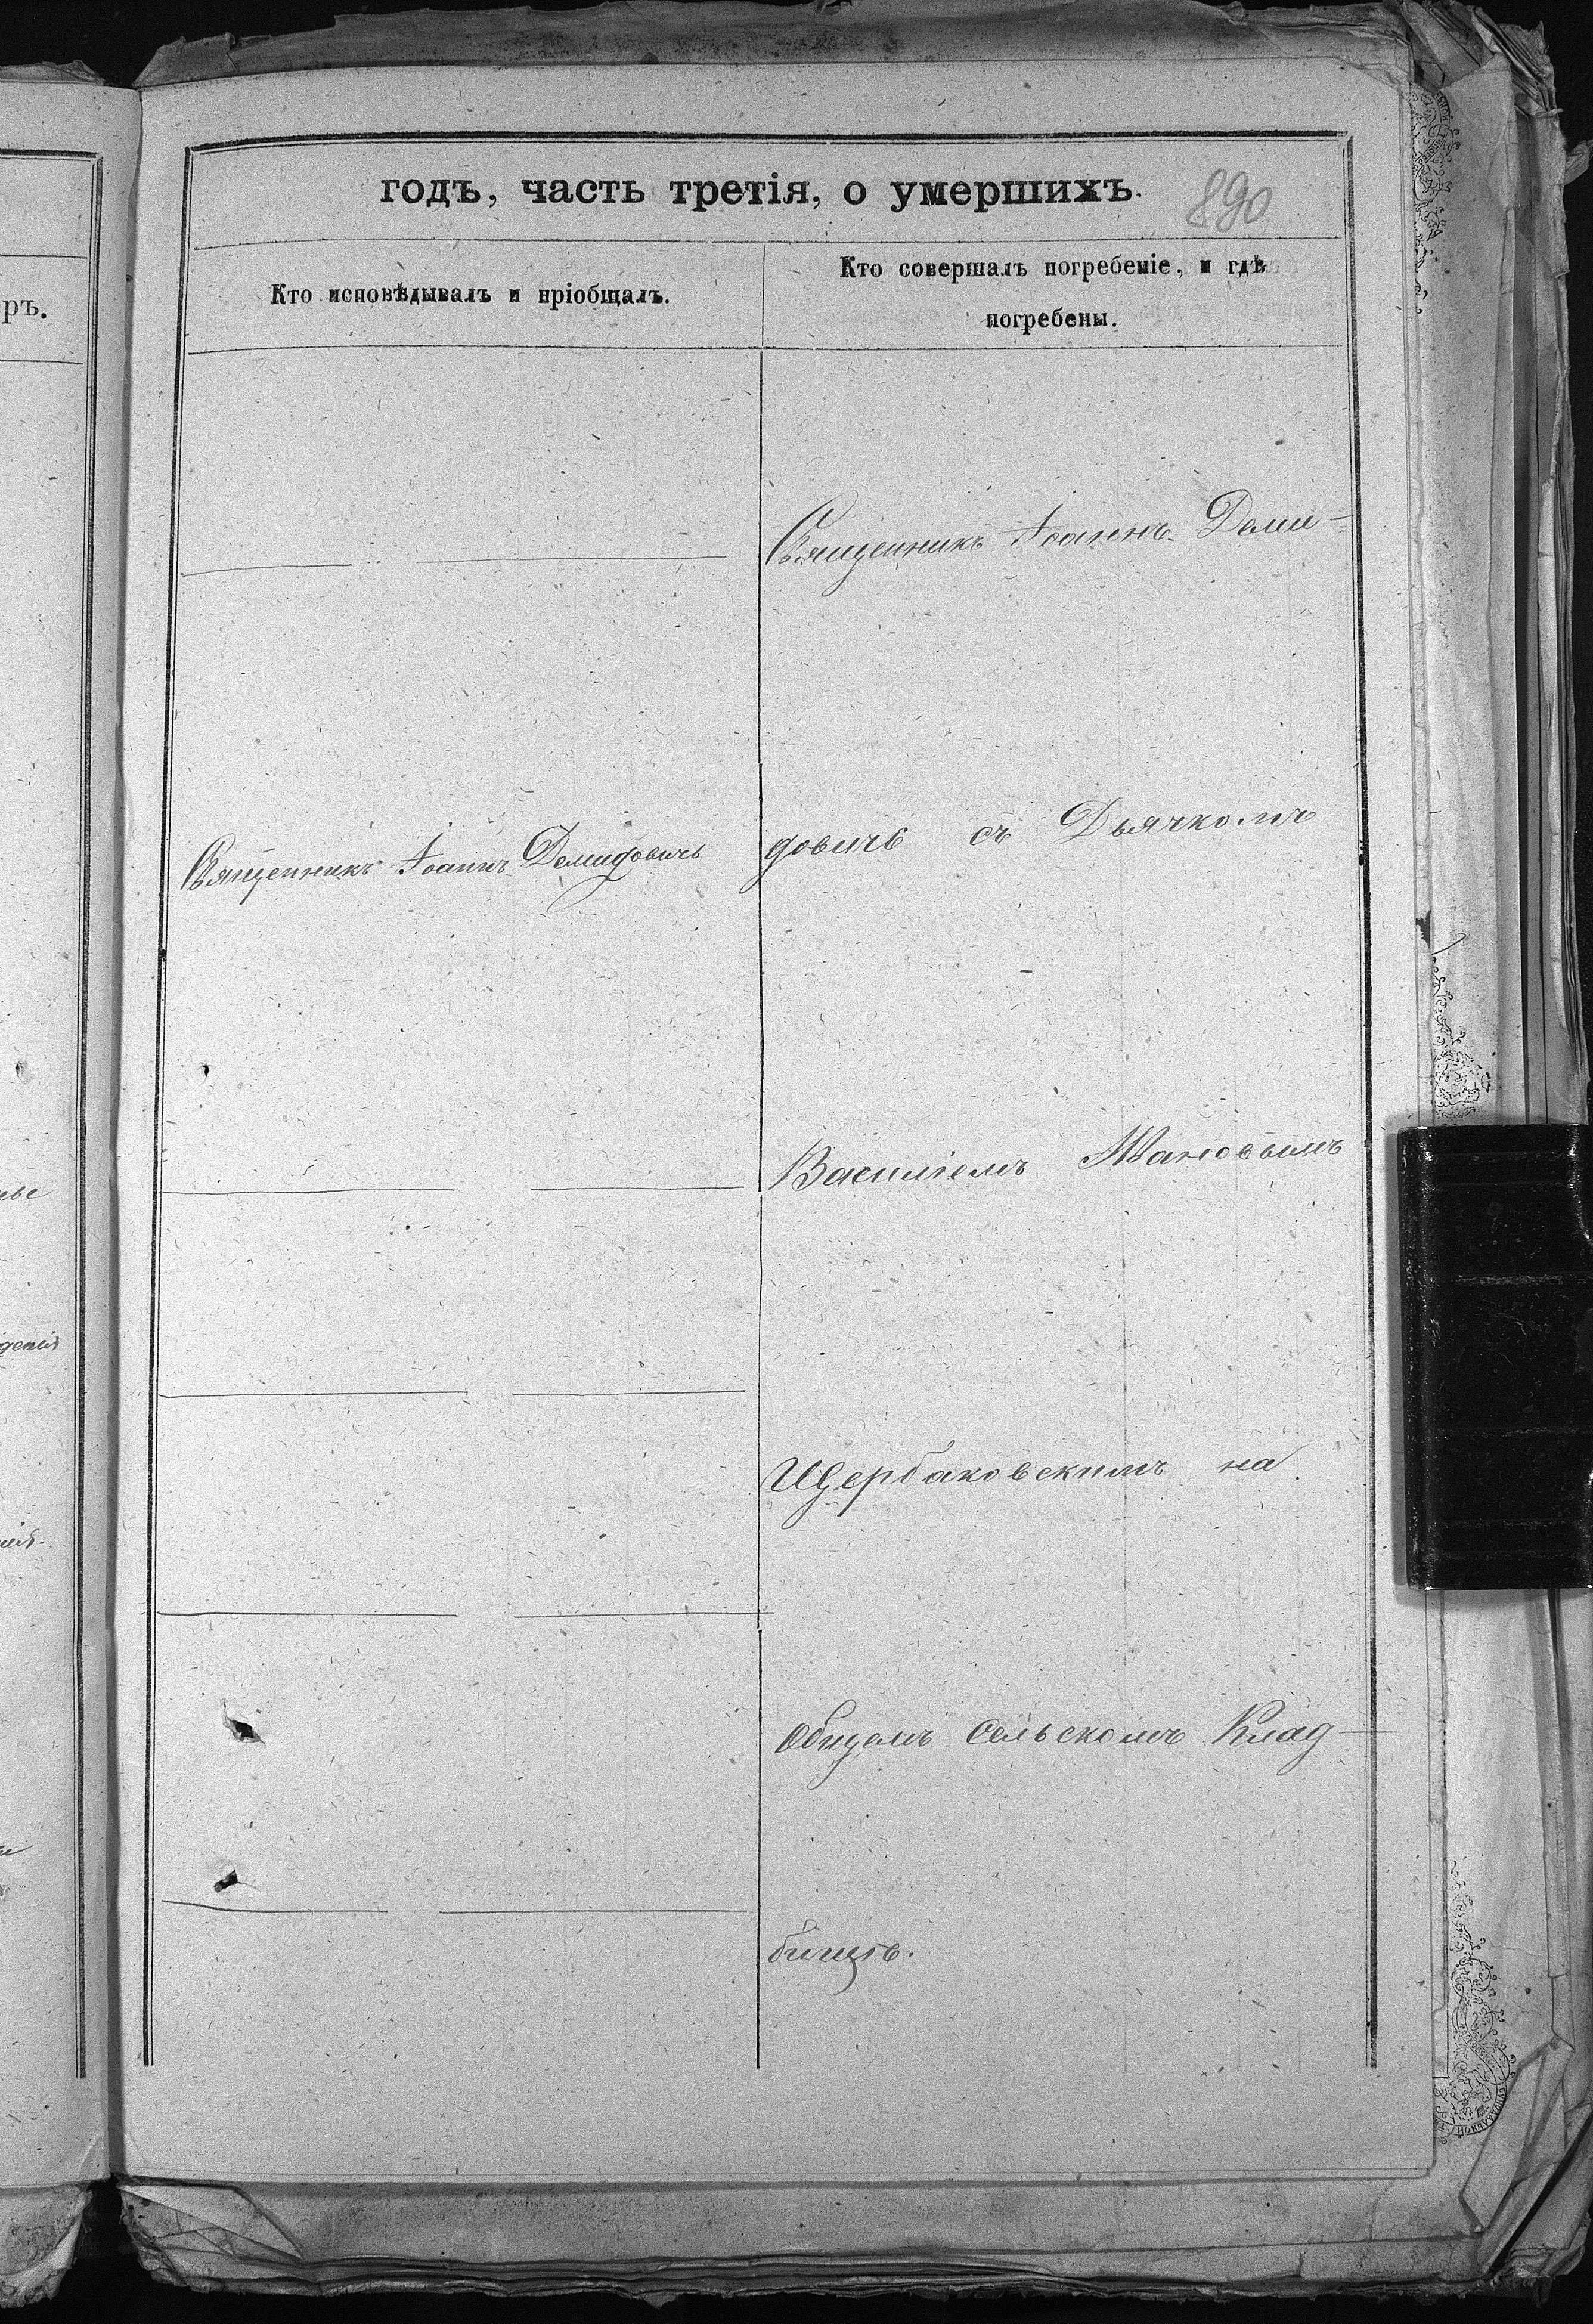 годъ, часть третія, о умершихъ.
890
Кто исповѣдывалъ и пріобщалъ.
Кто совершалъ погребеніе, и гдѣ
погребены.
Священникъ Іоаннъ Деми-
Священникъ Іоаннъ Демидовичъ
довичъ съ Дьячкомъ
Василіемъ
Щербаковскимъ на
Общемъ Сельскомъ Клад-
бищѣ.
ръ.